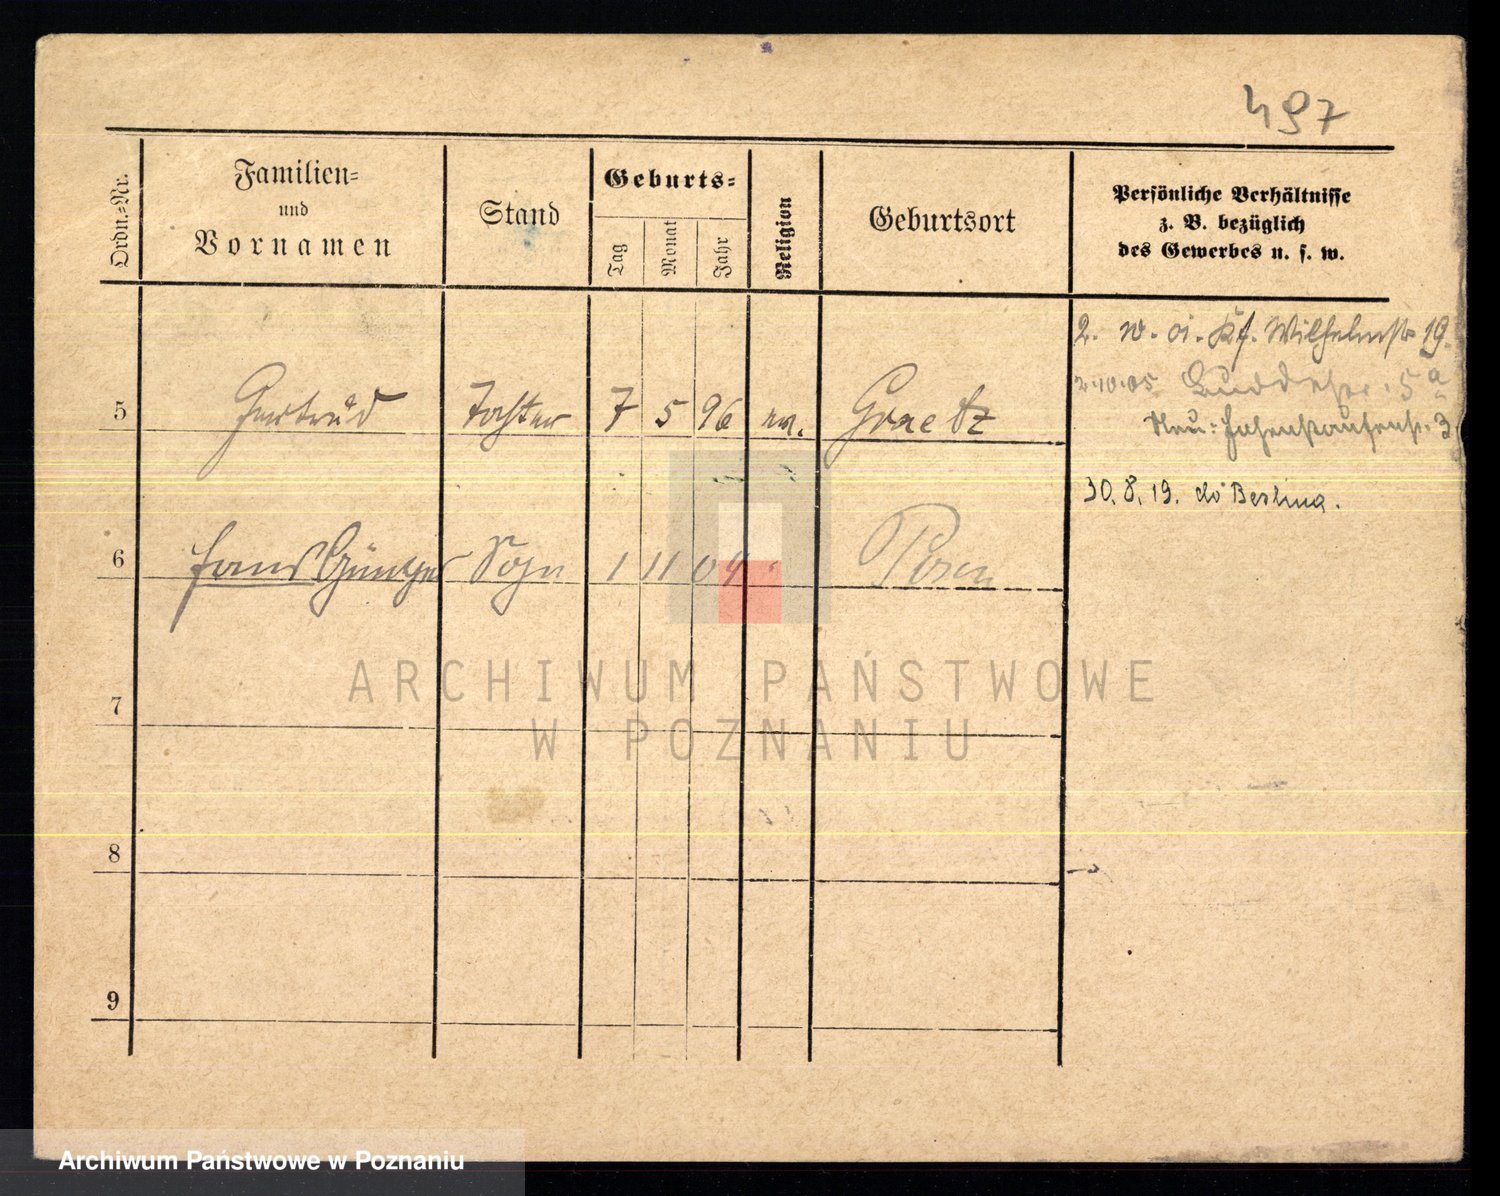 497
Ordn.-Nr.
Familien-
und
Vornamen
Stand
Geburts-
Tag
Monat
Jahr
Religion
Geburtsort
Persönliche Verhältnisse
z. B. bezüglich
des Gewerbes u. s. w.
2. W. Wilhelmstr 19.
5 Gertrud Tochter 7 5 96 ev. Graetz
2.10.05 5a
Neu: Hohenstaufenstr. 3
30. 8. 19. do Berlina.
6 Hans Günther Sohn 1 11 04 " Posen
ARCHIWUM PAŃSTWOWE
W POZNANIU
7
8
9
Archiwum Państwowe w Poznaniu